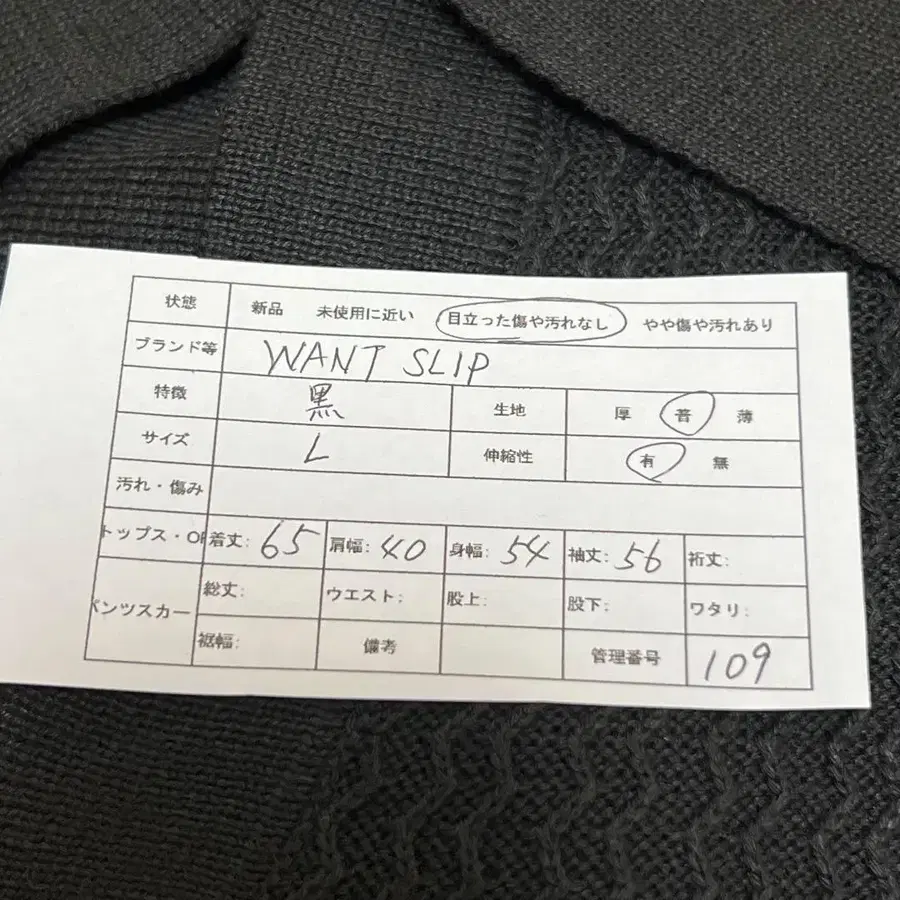 状態 新品 未使用に近い 目立った傷や汚れなし やや傷や汚れあり
ブランド等 WANT SLIP
特徴 黒 生地 厚 普 薄
サイズ L 伸縮性 有 無
汚れ・傷み
トップス・OP 着丈: 65 肩幅: 40 身幅: 54 袖丈: 56 裄丈:
パンツスカー 総丈: ウエスト: 股上: 股下: ワタリ:
裾幅: 備考 管理番号 109